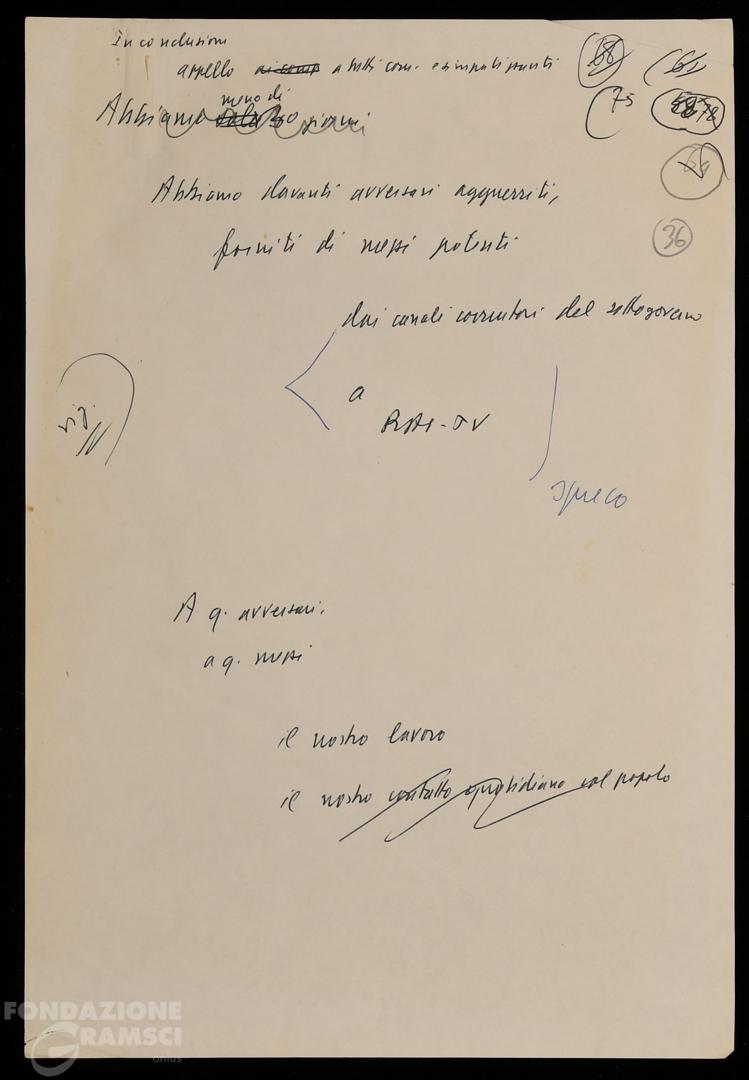 In conclusione
appello ai comp a tutti com. e simpatizzanti
68 61
Abbiamo meno di 30 giorni
75 78
Abbiamo davanti avversari agguerriti,
forniti di mezzi potenti
36
dai canali corruttori del sottogoverno
a
RAI-TV
rig.
spreco
A q. avversari,
a q. mezzi
il nostro lavoro
il nostro contatto quotidiano col popolo
FONDAZIONE
GRAMSCI
onlus